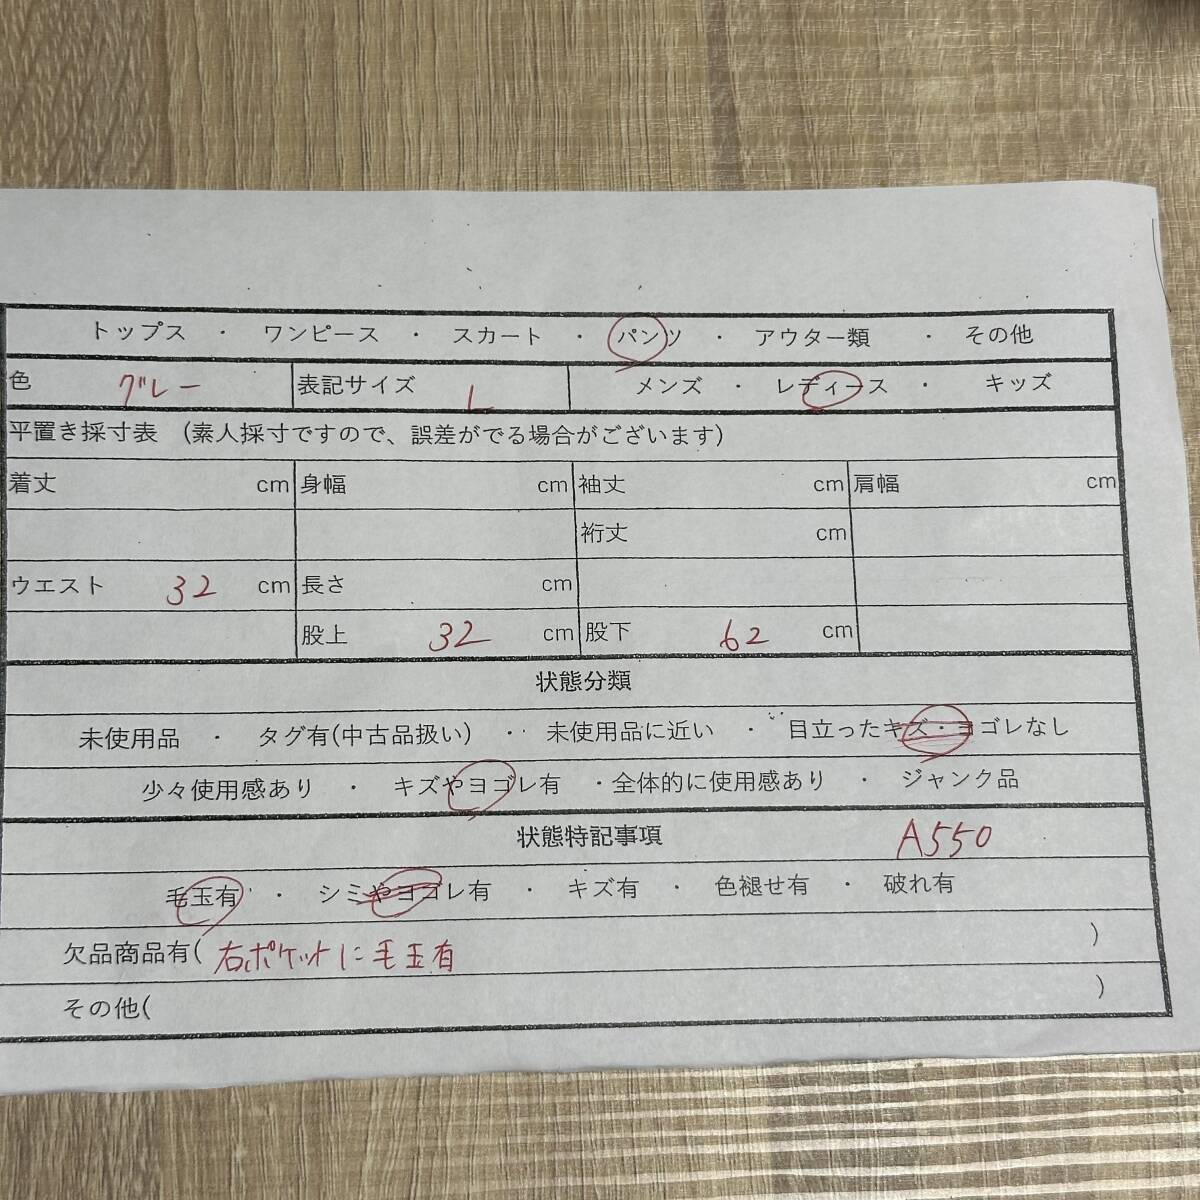 トップス ・ ワンピース ・ スカート ・ パンツ ・ アウター類 ・ その他
色 グレー 表記サイズ L メンズ ・ レディース ・ キッズ
平置き採寸表 (素人採寸ですので、誤差がでる場合がございます)
着丈 cm 身幅 cm 袖丈 cm 肩幅 cm
裄丈 cm
ウエスト 32 cm 長さ cm
股上 32 cm 股下 62 cm
状態分類
未使用品 ・ タグ有(中古品扱い) ・ 未使用品に近い ・ 目立ったキズ・ヨゴレなし
少々使用感あり ・ キズやヨゴレ有 ・全体的に使用感あり ・ ジャンク品
状態特記事項 A550
毛玉有 ・ シミやヨゴレ有 ・ キズ有 ・ 色褪せ有 ・ 破れ有
欠品商品有( 右ポケットに毛玉有 )
その他( )